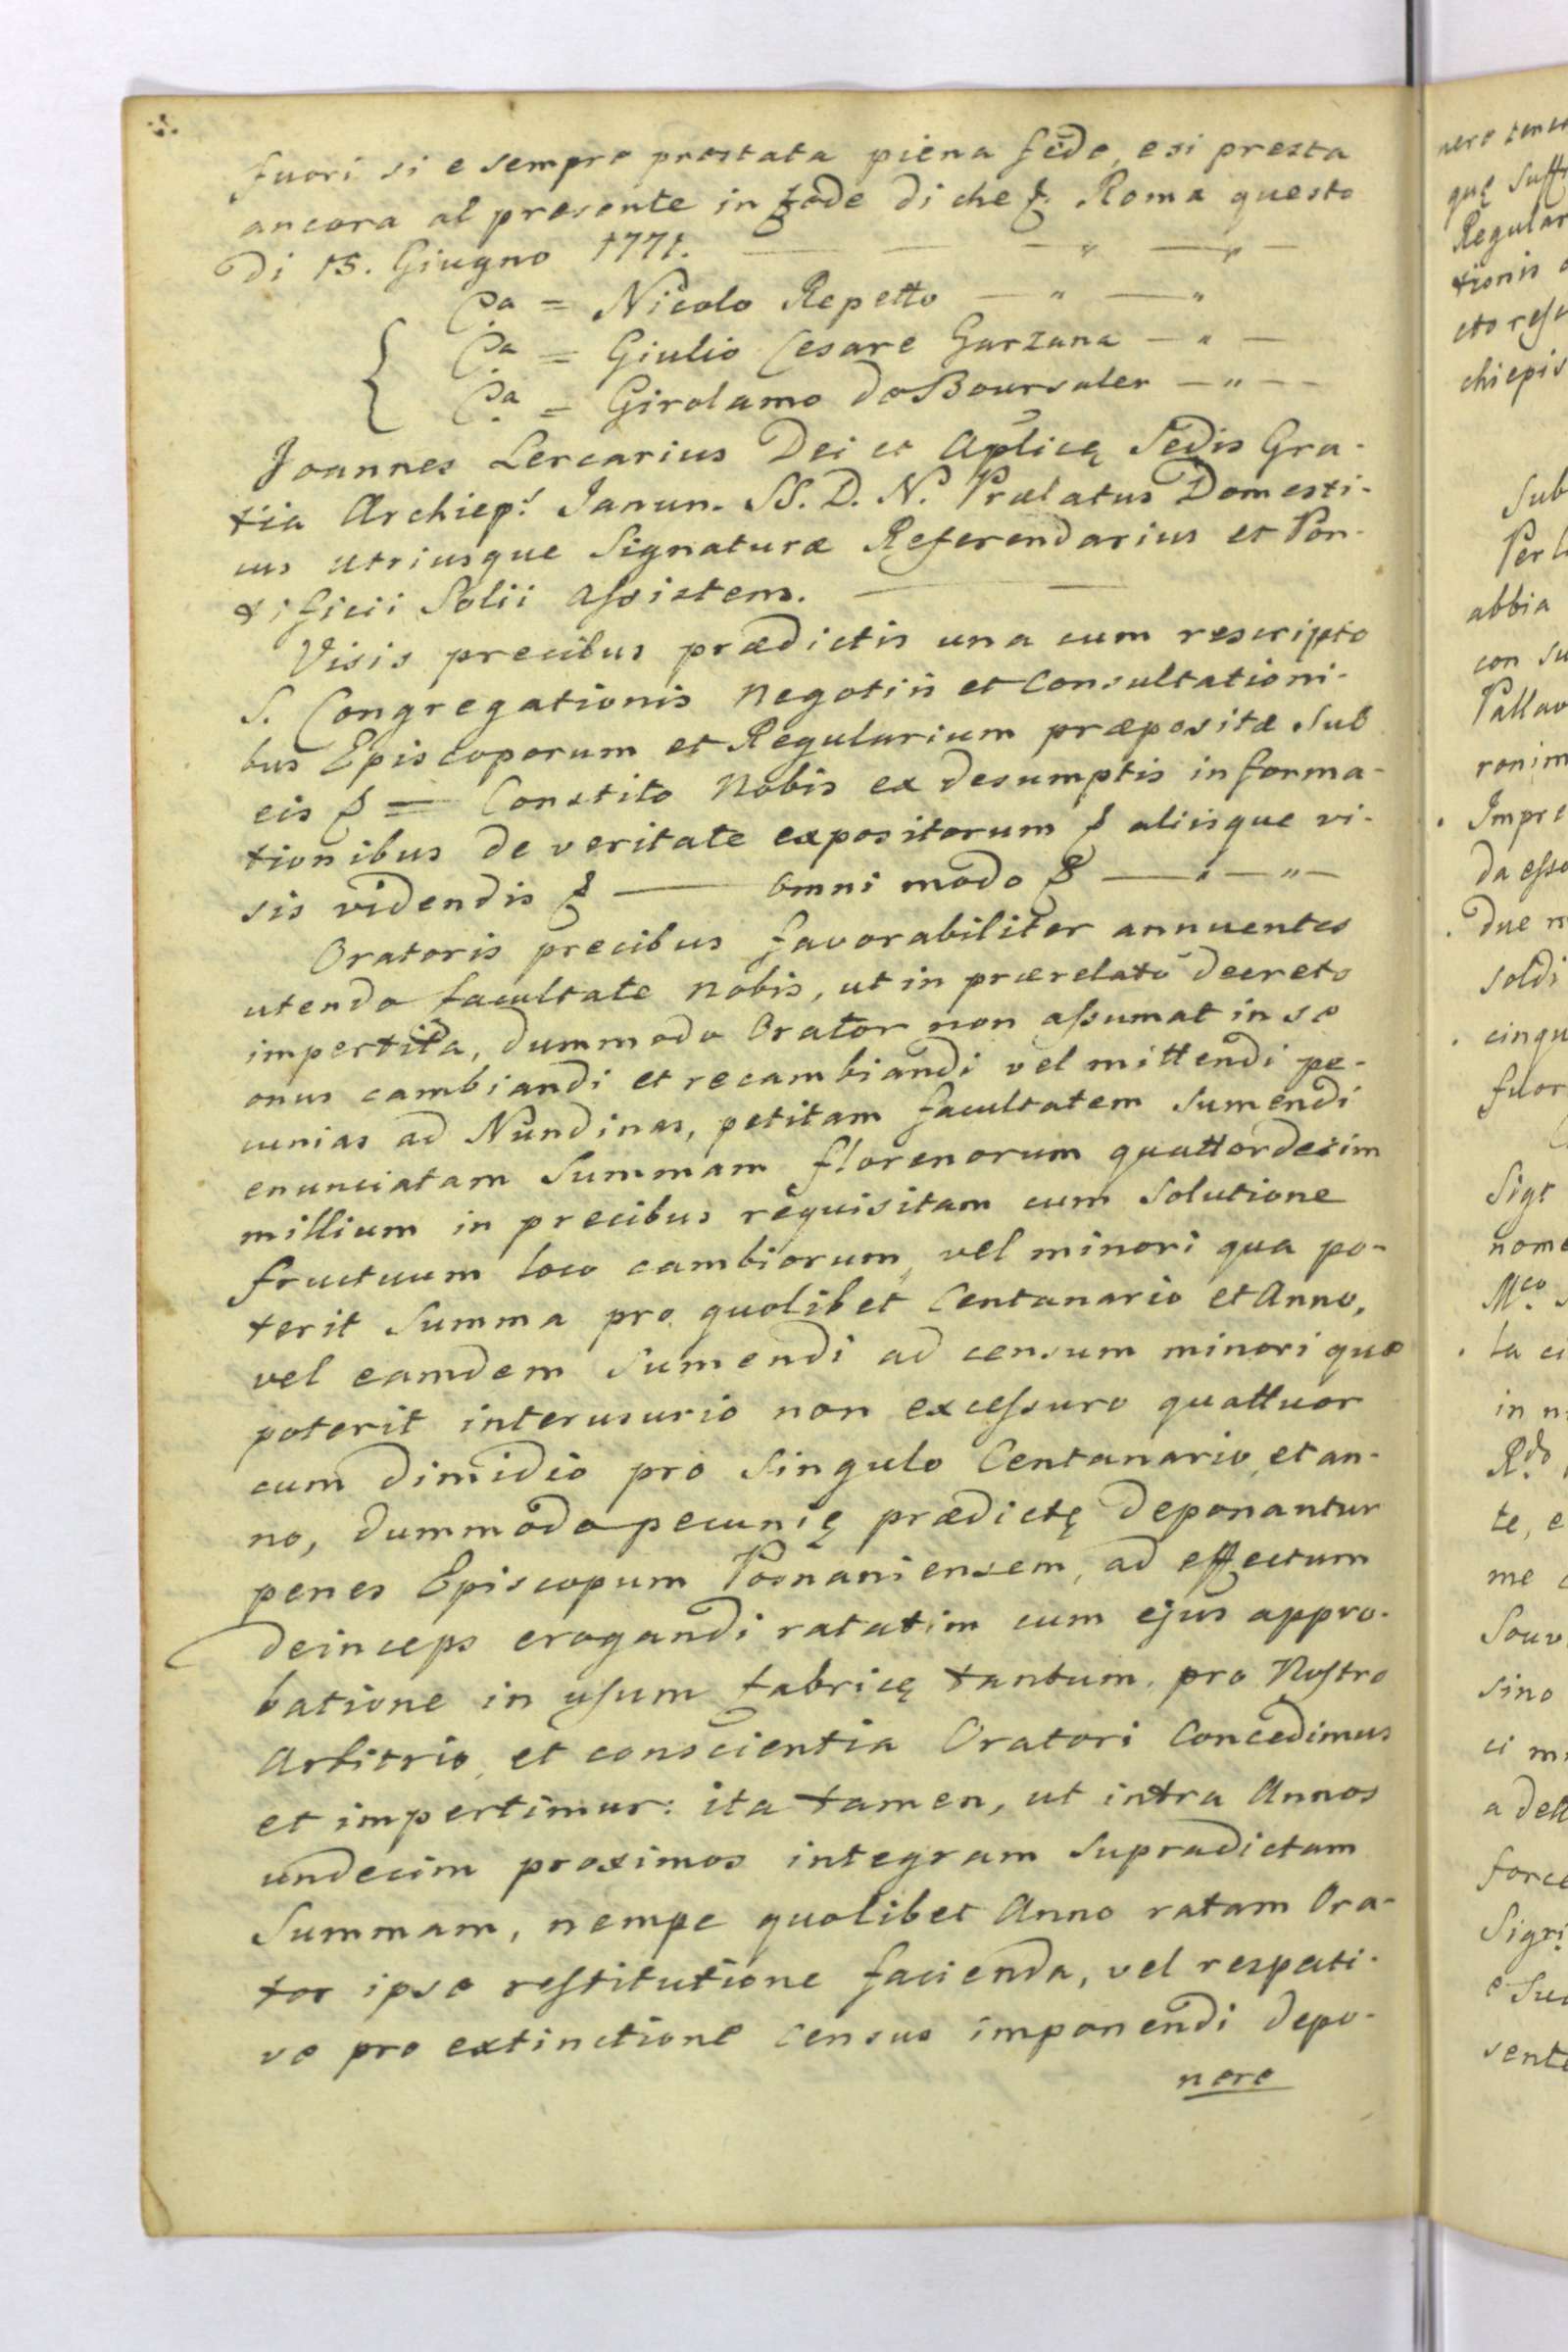 fuori si e sempre prestata piena fede, e si presta
ancora al presente in fede di che &. Roma questo
di 15. Giugno 1771. — — — " — " —
C.a = Nicolo Repetto — " — "
C.a = Giulio Cesare Garzana — " —
C.a = Girolamo do Boursaler — " — —
Joannes Lercarius Dei et Aplicę Sedis Gra-
tia Archiep.s Januen. SS. D. N. Prælatus Domesti-
cus utriusque Signaturæ Referendarius et Pon-
tificii Solii Assistens. — —
Visis precibus prædictis una cum rescripto
S. Congregationis Negotiis et Consultationi-
bus Episcoporum et Regularium præpositæ sub
eis & = Constito Nobis ex desumptis informa-
tionibus de veritate expositorum & aliisque vi-
sis videndis & — omni modo & — " — " —
Oratoris precibus favorabiliter annuentes
utendo facultate nobis, ut in prærelato decreto
impertita, dummodo Orator non assumat in se
onus cambiandi et recambiandi vel mittendi pe-
cunias ad Nundinas, petitam facultatem sumendi
enunciatam Summam florenorum quattordecim
millium in precibus requisitam cum solutione
fructuum loco cambiorum, vel minori qua po-
terit Summa pro quolibet Centanario et Anno,
vel eamdem sumendi ad censum minori quo
poterit interusurio non excessuro quattuor
cum dimidio pro singulo Centanario, et an-
no, dummodo pecunię prædictę deponantur
penes Episcopum Posnaniensem, ad effectum
deinceps erogandi ratatim cum ejus appro-
batione in usum fabricę tantum, pro Nostro
Arbitrio, et conscientia Oratori Concedimus
et impertimur: ita tamen, ut intra Annos
undecim proximos integram supradictam
Summam, nempe quolibet Anno ratam Ora-
tor ipse restitutione facienda, vel respecti-
ve pro extinctione Census imponendi depo-
nere
que
Regular
tionis
chiepis
Sub
Per
abbia
con su
Pallav
ronim
Impre
da esse
due
soldi
cinqu
fuor
Sigr
nome
Mco
la
in
Rdo
te, e
me
Souv
sino
ci
a dell
force
Sigri
e Suc
sente